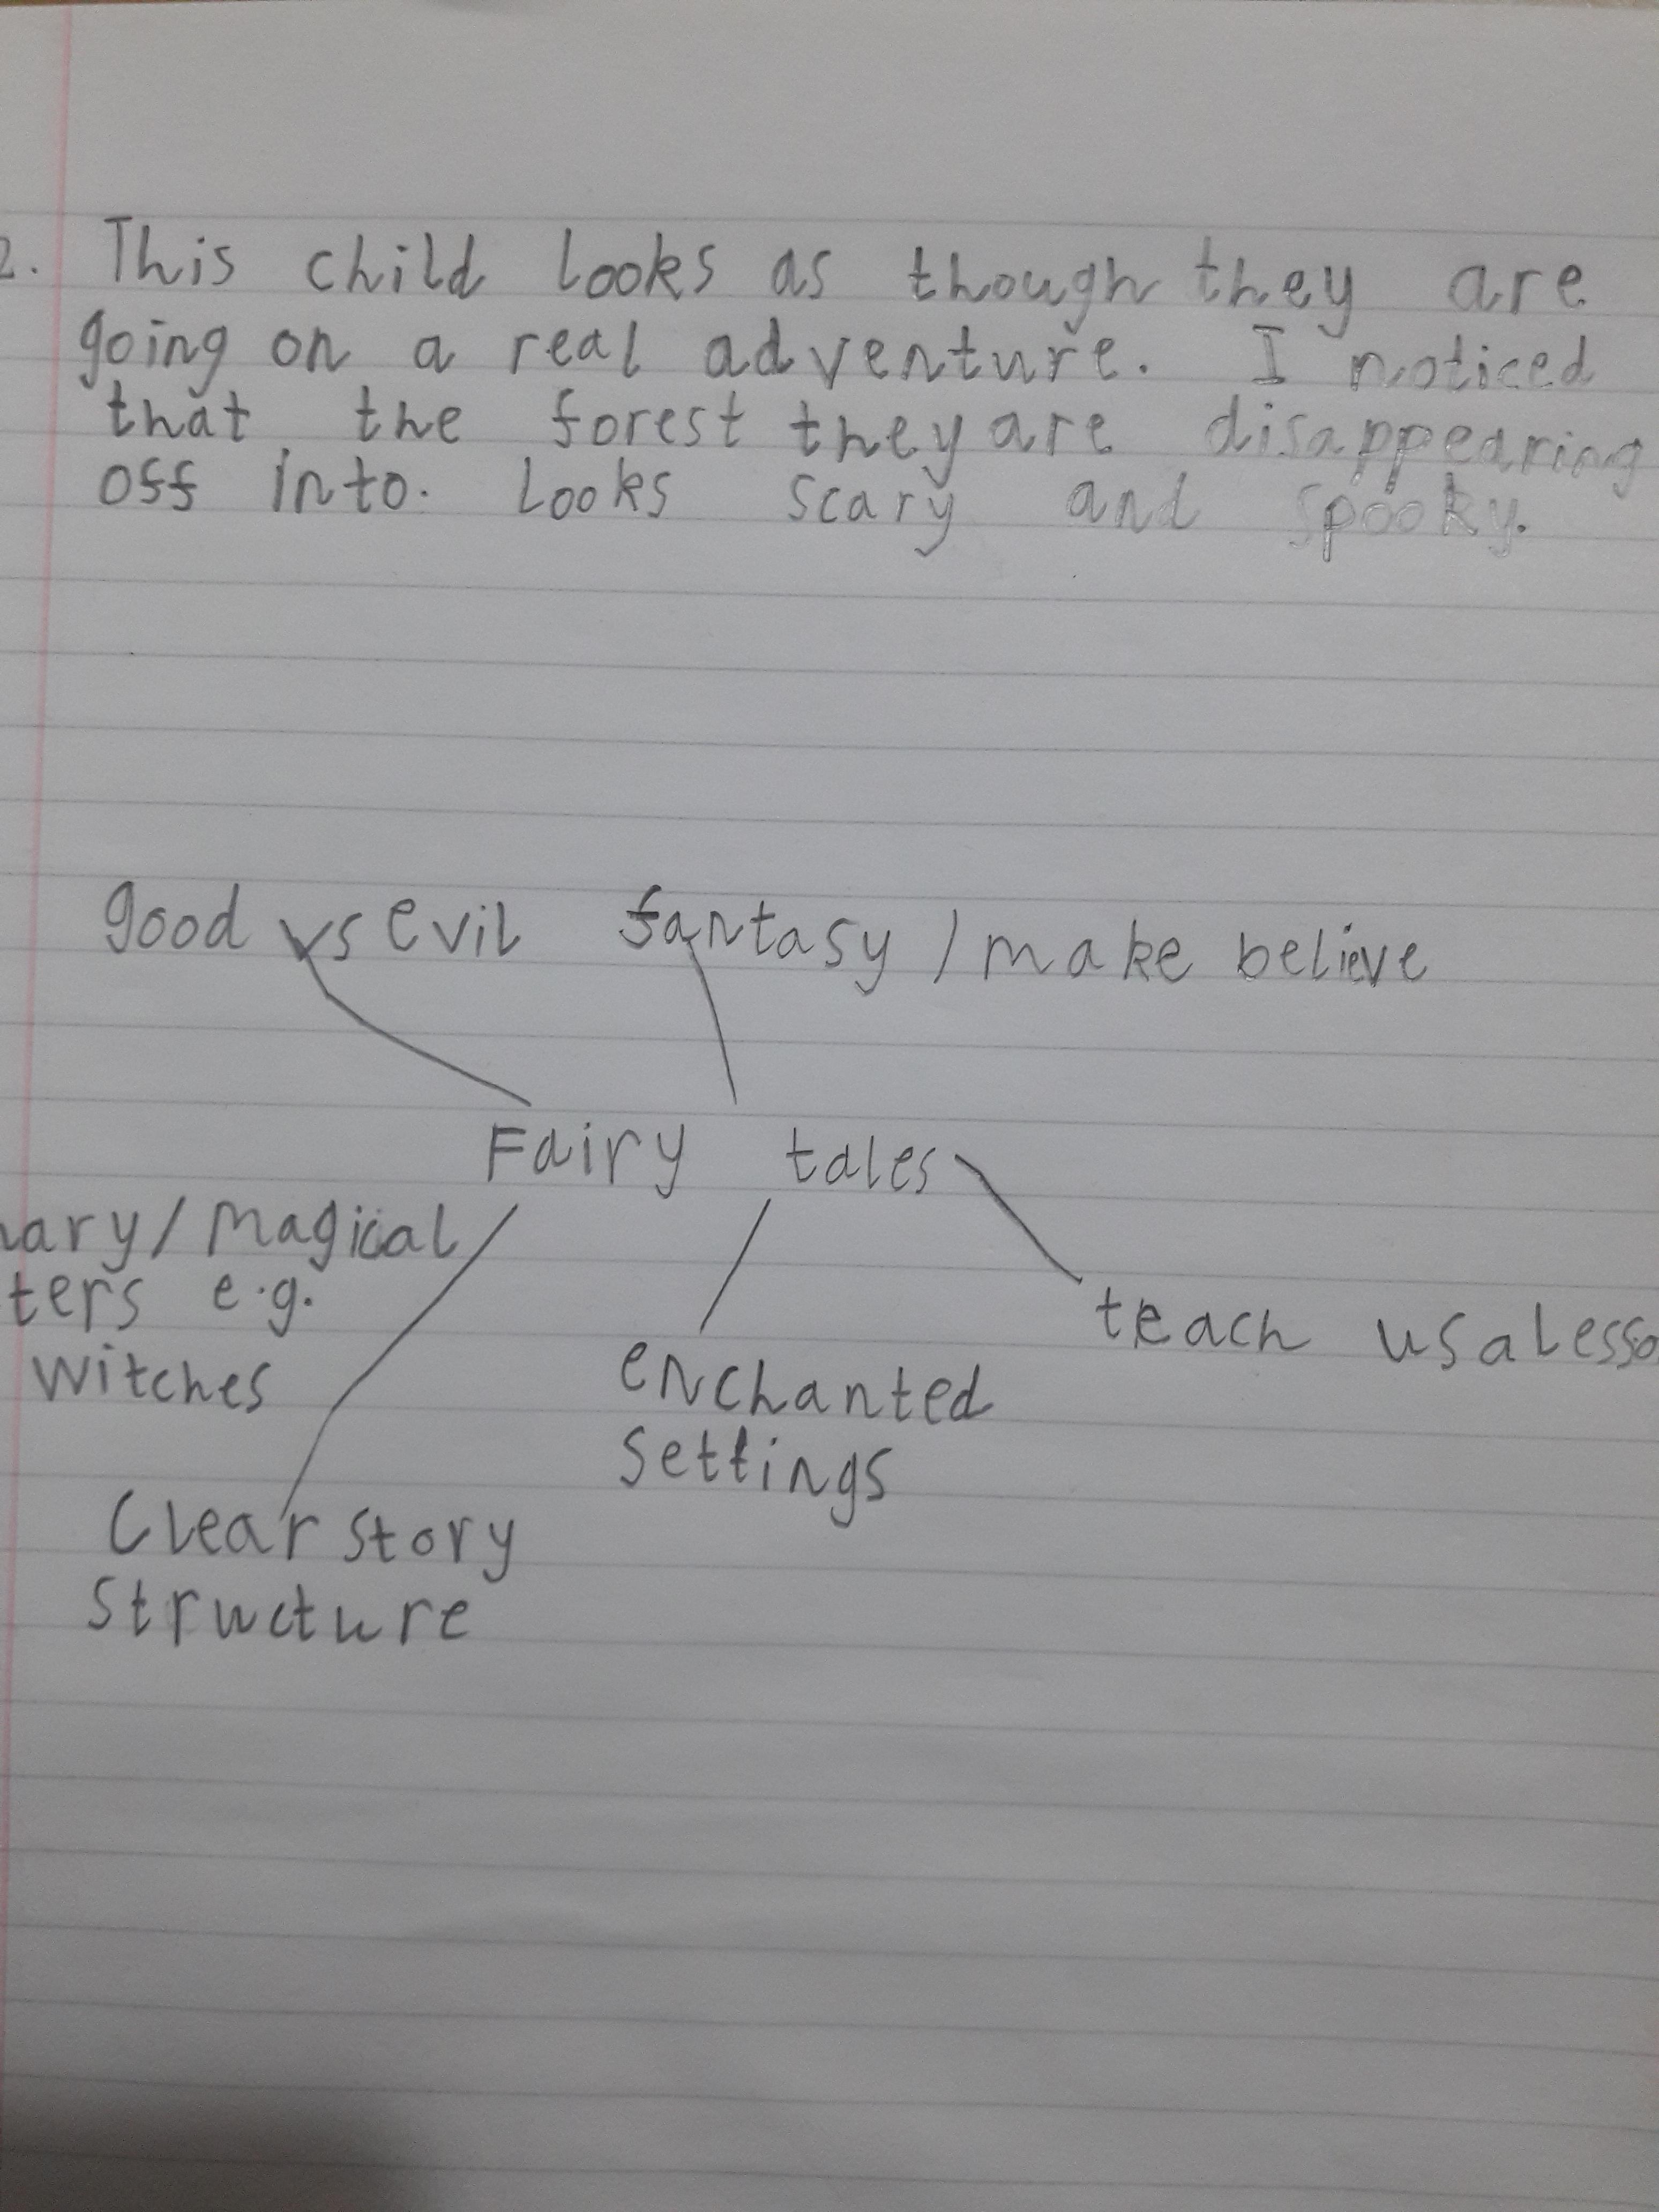 2. This child looks as though they are
going on a real adventure. I noticed
that the forest they are disappearing
off into. Looks scary and spooky.
good vs evil fantasy / make believe
Fairy tales
/ Magical
e.g.
witches
teach us a
enchanted
settings
Clear story
structure